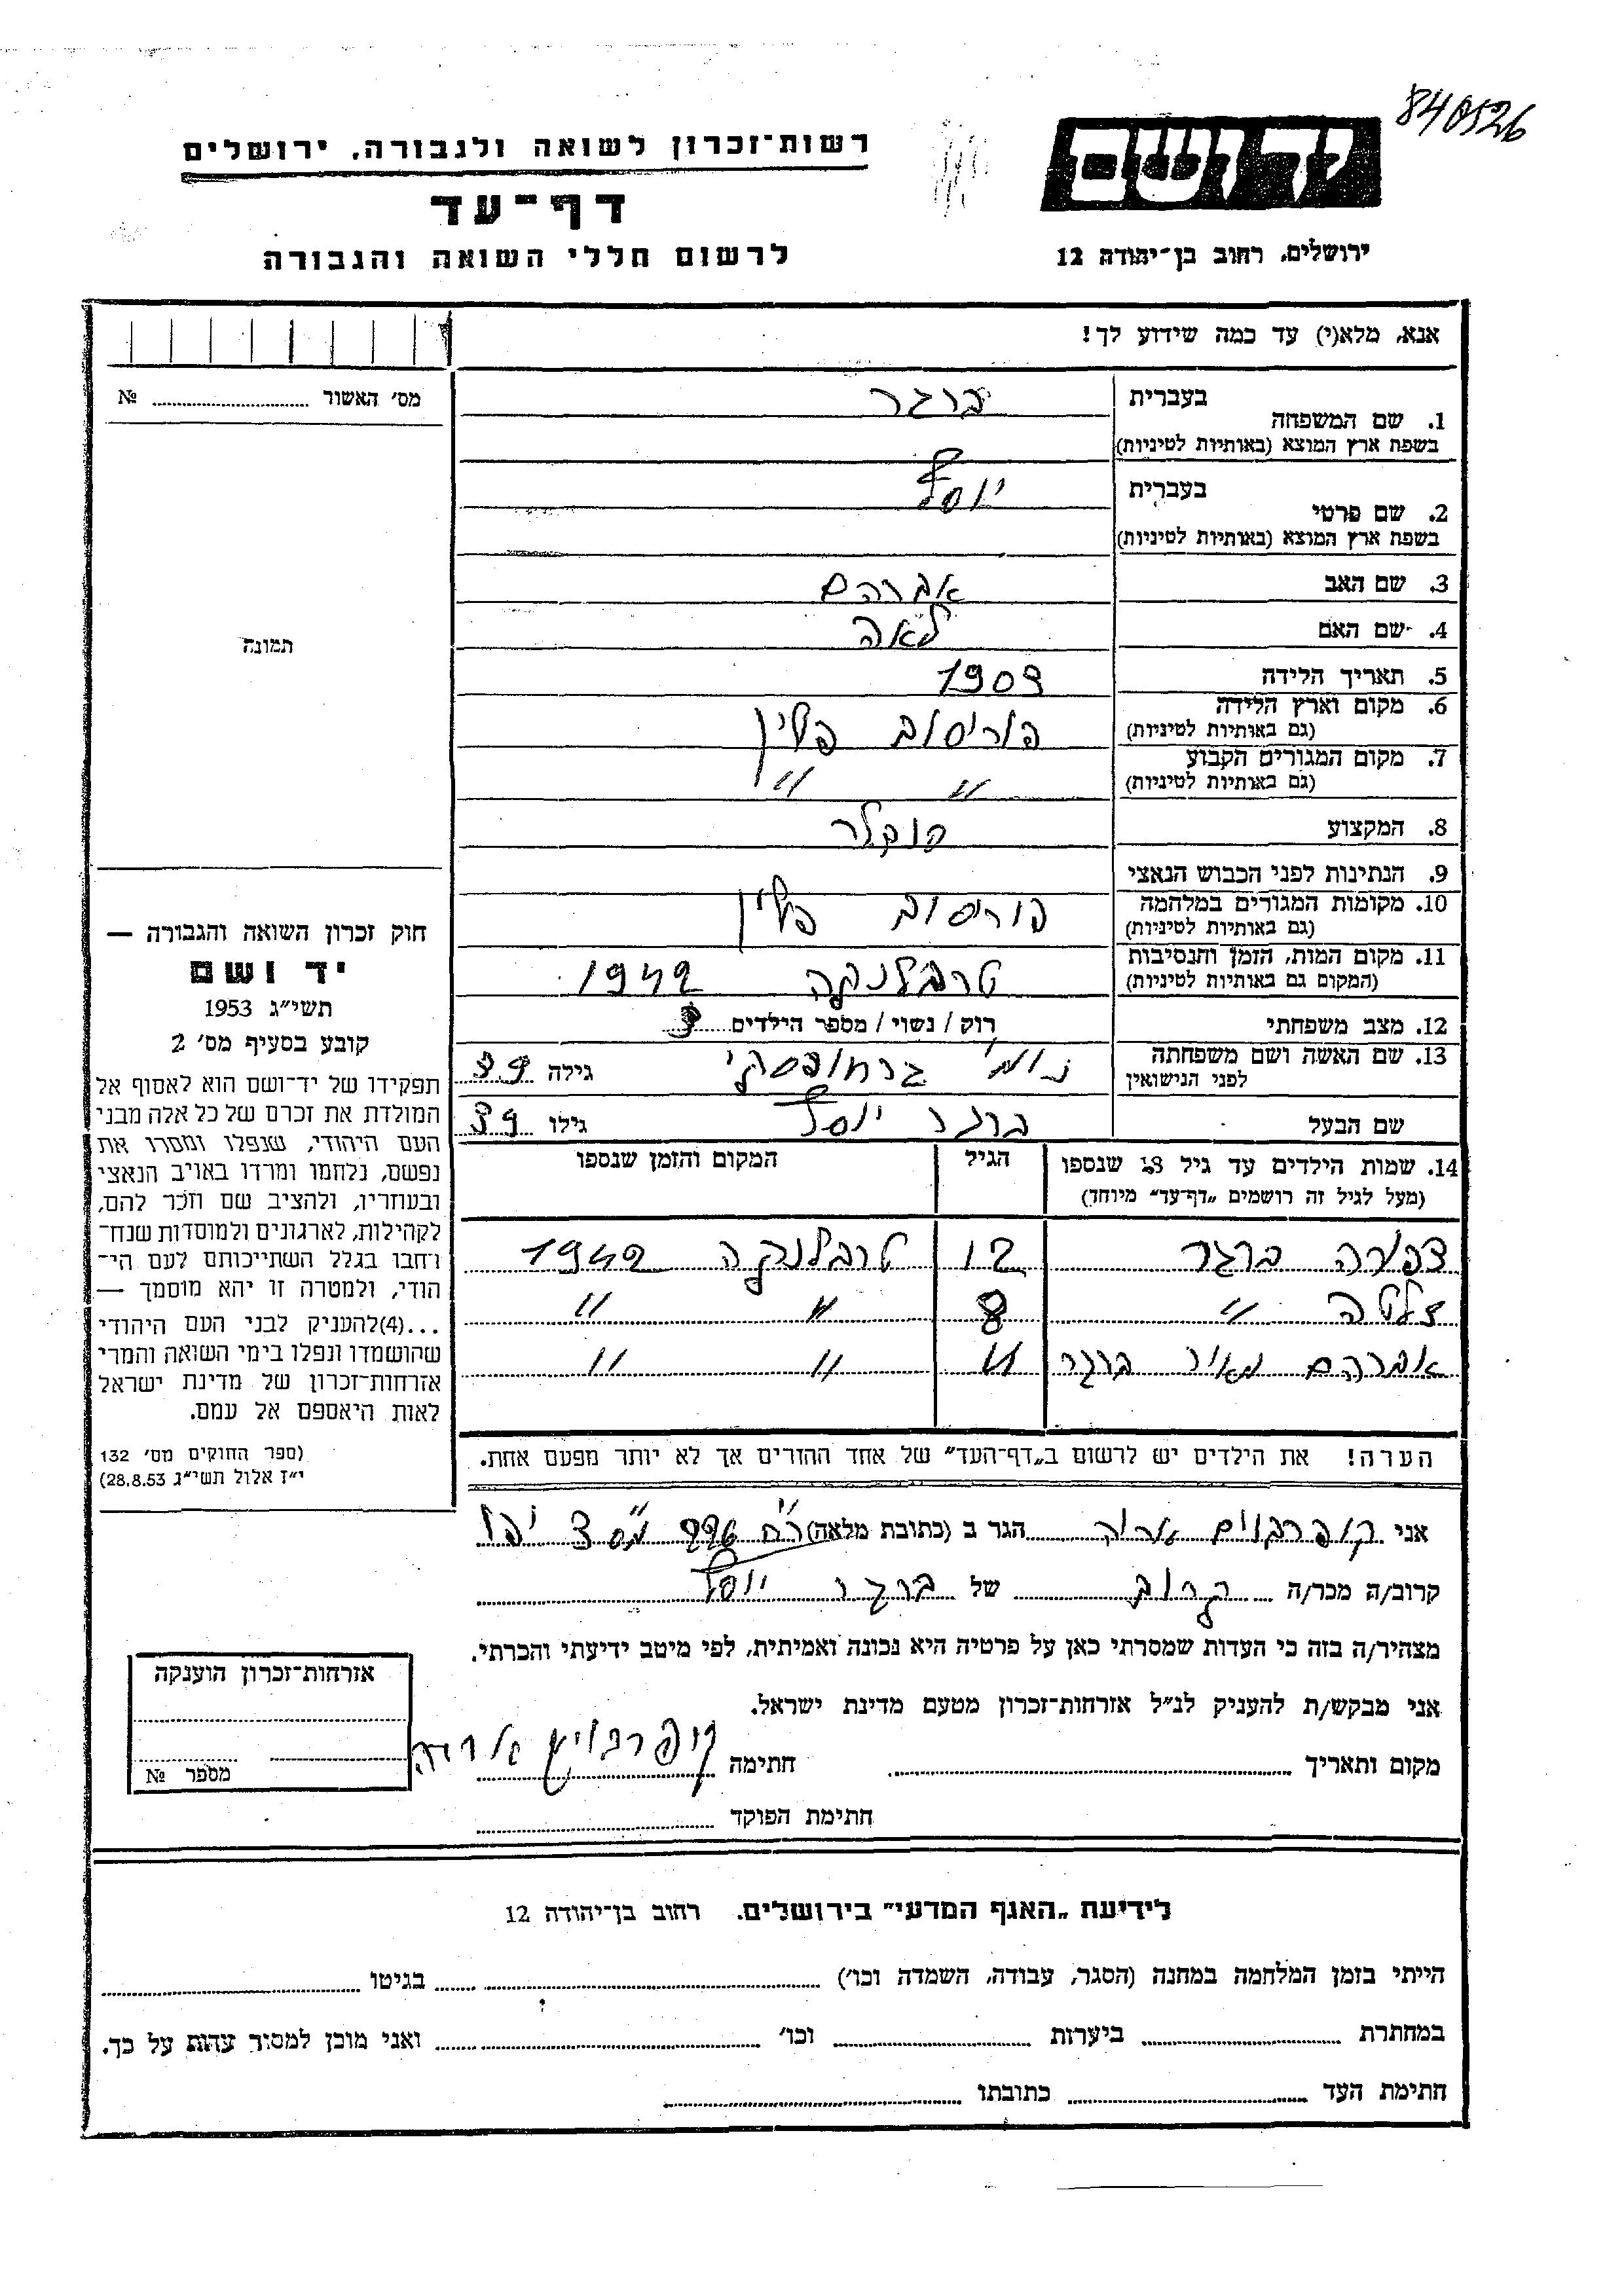 840526
יד ושם
רשות־זכרון לשואה ולגבורה, ירושלים
דף־עד
לרשום חללי השואה והגבורה
ירושלים, רחוב בן־יהודה 12
אנא, מלא(י) עד כמה שידוע לך!
מס׳ האשור № 
1. שם המשפחה בעברית ברגר
בשפת ארץ המוצא (באותיות לטיניות)
2. שם פרטי בעברית יוסף
בשפת ארץ המוצא (באותיות לטיניות)
3. שם האב אברהם
4. שם האם לאה
5. תאריך הלידה 1903
6. מקום וארץ הלידה פוריסוב פולין
(גם באותיות לטיניות)
7. מקום המגורים הקבוע " "
(גם באותיות לטיניות)
8. המקצוע
9. הנתינות לפני הכבוש הנאצי
10. מקומות המגורים במלחמה פוריסוב פולין
(גם באותיות לטיניות)
11. מקום המות, הזמן והנסיבות טרבלנקה 1942
(המקום גם באותיות לטיניות)
12. מצב משפחתי רוק / נשוי / מספר הילדים 3
13. שם האשה ושם משפחתה גילה 39
לפני הנישואין
שם הבעל ברגר יוסף גילו 39
14. שמות הילדים עד גיל 18 שנספו הגיל המקום והזמן שנספו
(מעל לגיל זה רושמים „דף־עד״ מיוחד)
צפורה ברגר 12 טרבלנקה 1942
זלטה " 8 " "
אברהם מאיר ברגר 11 " "
הערה! את הילדים יש לרשום ב„דף־העד״ של אחד ההורים אך לא יותר מפעם אחת.
תמונה
חוק זכרון השואה והגבורה —
יד ושם
תשי״ג 1953
קובע בסעיף מס׳ 2
תפקידו של יד־ושם הוא לאסוף אל
המולדת את זכרם של כל אלה מבני
העם היהודי, שנפלו ומסרו את
נפשם, נלחמו ומרדו באויב הנאצי
ובעוזריו, ולהציב שם וזכר להם,
לקהילות, לארגונים ולמוסדות שנח־
רבו בגלל השתייכותם לעם הי־
הודי, ולמטרה זו יהא מוסמך —
...(4) להעניק לבני העם היהודי
שהושמדו ונפלו בימי השואה והמרי
אזרחות־זכרון של מדינת ישראל
לאות היאספם אל עמם.
(ספר החוקים מס׳ 132
י״ז אלול תשי״ג 28.8.53)
אני קופרבוים אריה הגר ב (כתובת מלאה)
קרוב/ה מכר/ה קרוב של ברגר יוסף
מצהיר/ה בזה כי העדות שמסרתי כאן על פרטיה היא נכונה ואמיתית, לפי מיטב ידיעתי והכרתי.
אני מבקש/ת להעניק לנ״ל אזרחות־זכרון מטעם מדינת ישראל.
מקום ותאריך חתימה קופרבוים אריה
חתימת הפוקד
אזרחות־זכרון הוענקה
מספר №
לידיעת „האגף המדעי״ בירושלים, רחוב בן־יהודה 12
הייתי בזמן המלחמה במחנה (הסגר, עבודה, השמדה וכו׳) בגיטו
במחתרת ביערות וכו׳ ואני מוכן למסור עדות על כך.
חתימת העד כתובתו